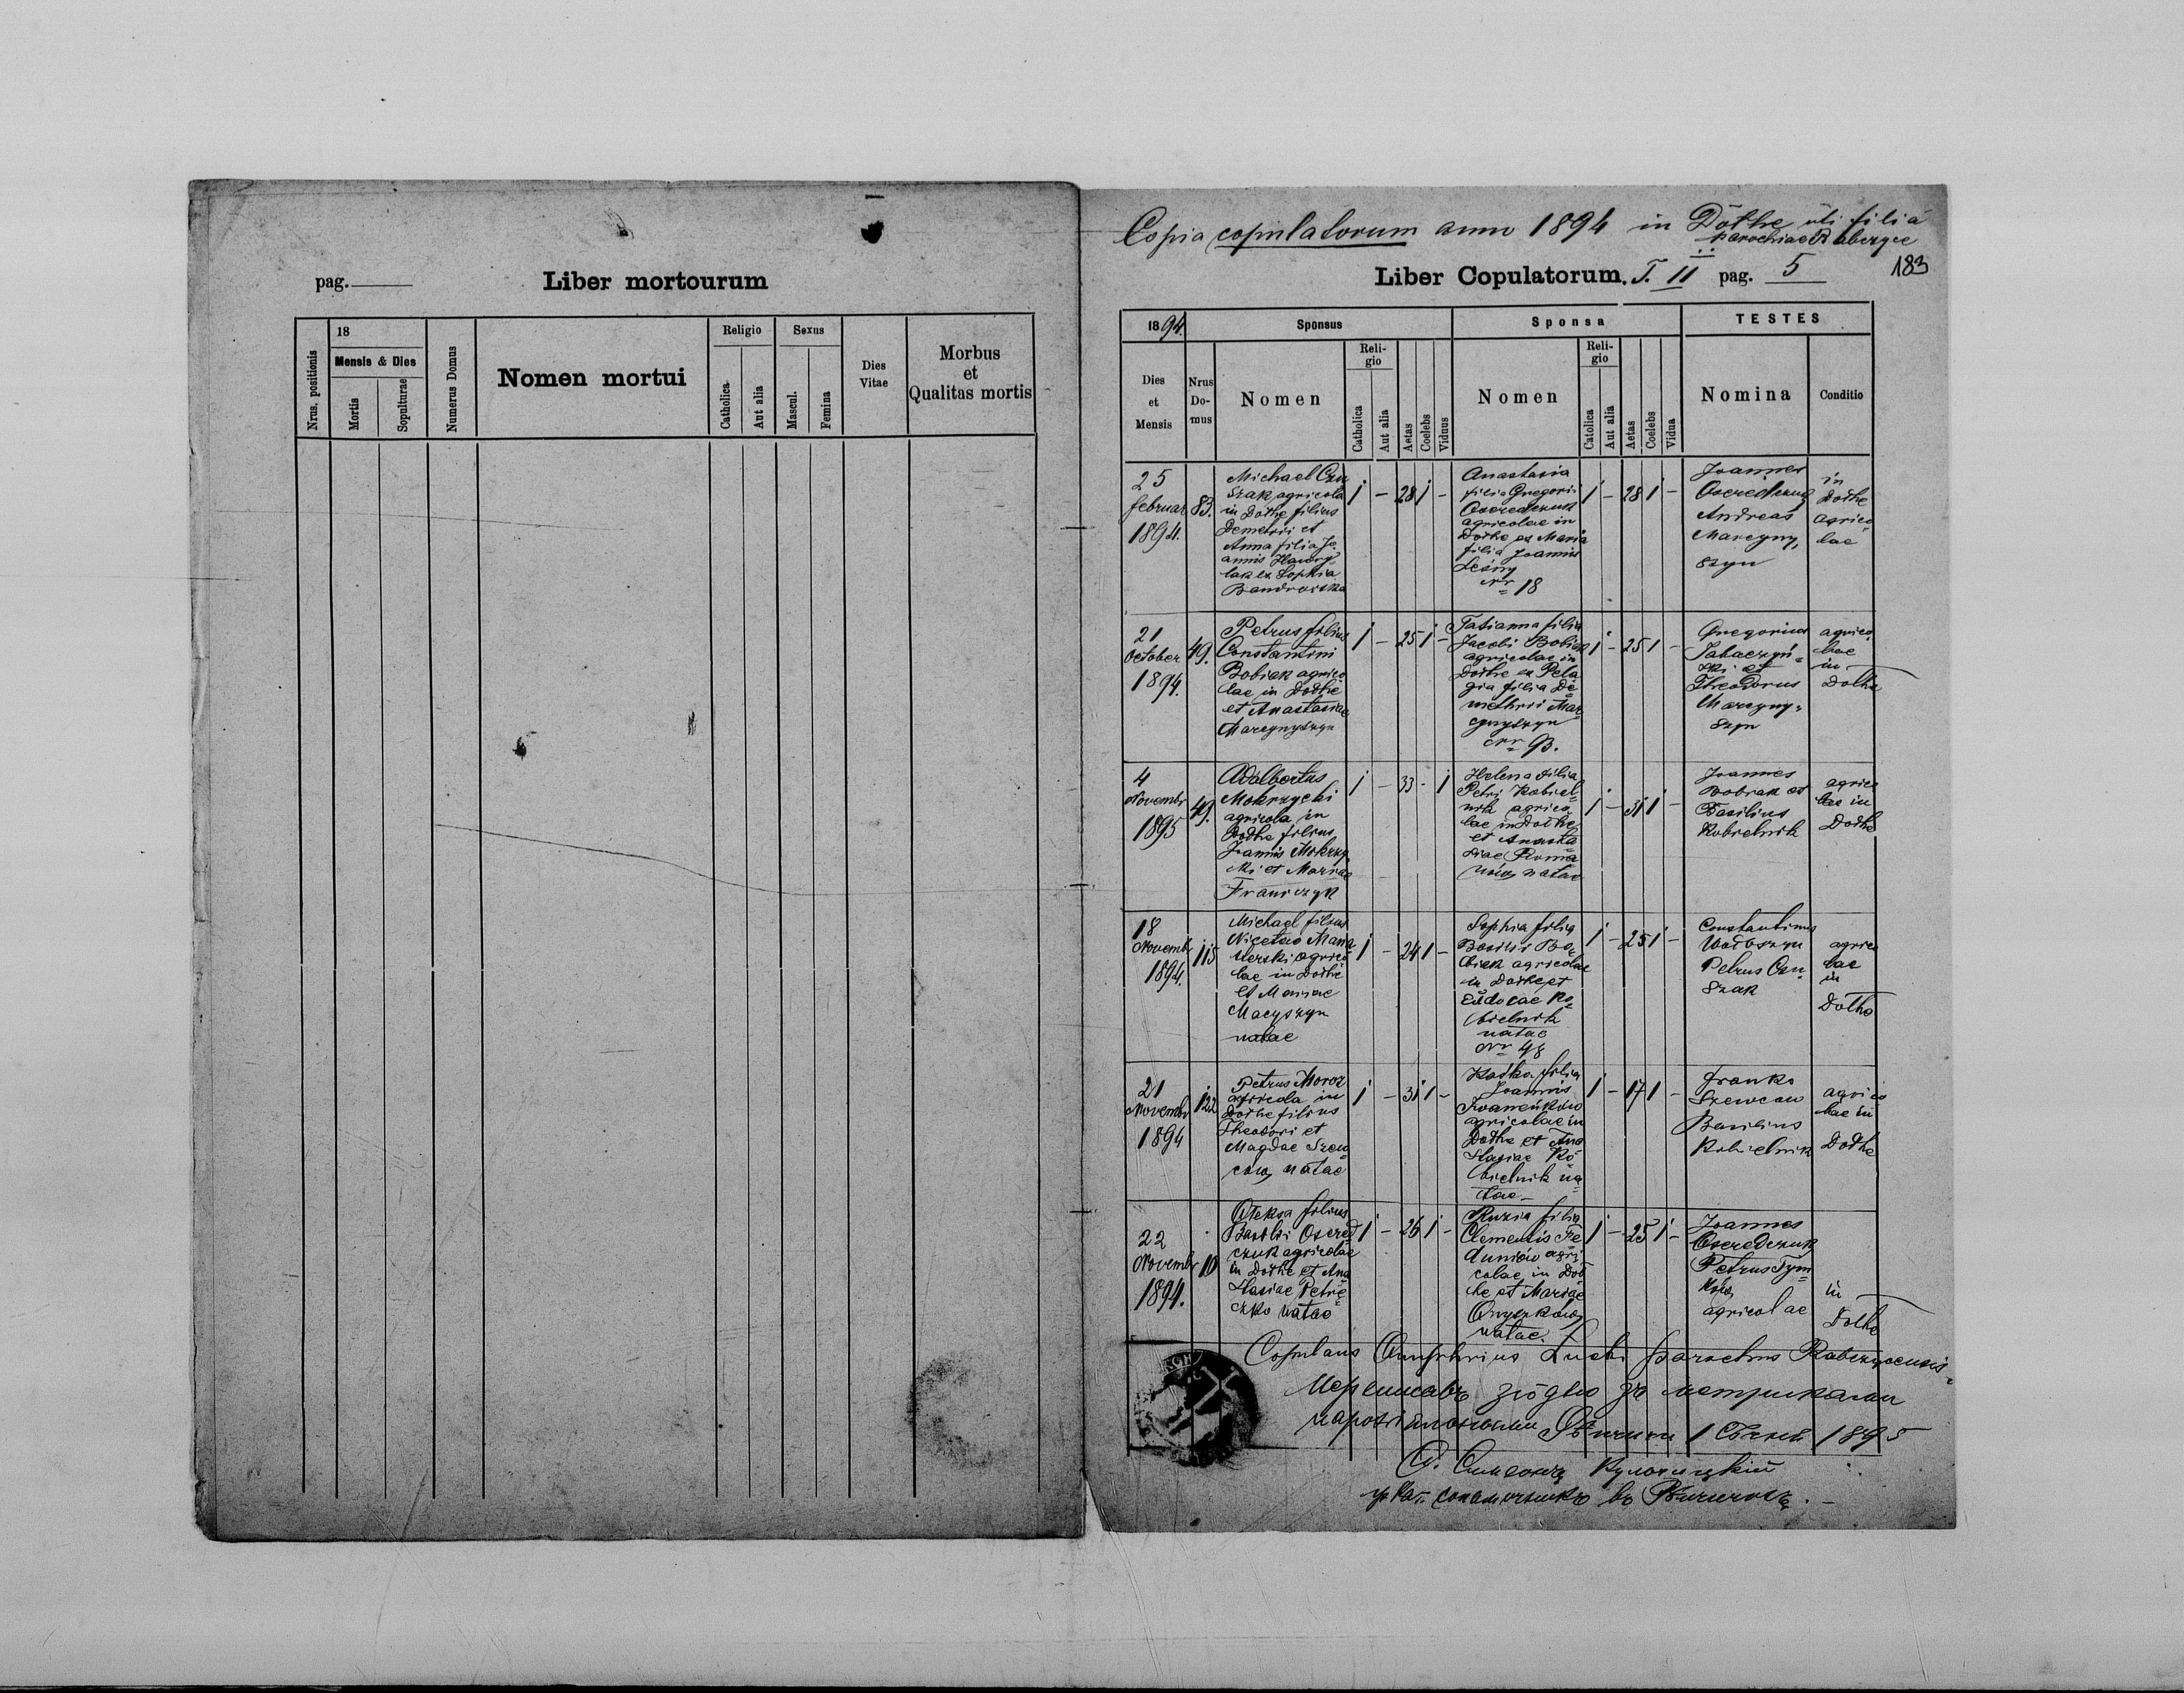 pag.
Liber mortuorum
Nrus. positionis
18
Mensis & Dies
Mortis
Sopulturae
Numerus Domus
Nomen mortui
Religio
Catholica
Aut alia
Sexus
Mascul.
Femina
Dies
Vitae
Morbus
et
Qualitas mortis
Copia copulatorum anno 1894 in Dołhe uti filia
parochiae Rabczyce
183
Liber Copulatorum. T. II pag. 5
1894.
Sponsus
Sponsa
TESTES
Dies
et
Mensis
Nrus
Do-
mus
Nomen
Reli-
gio
Catholica
Aut alia
Aetas
Coelebs
Viduus
Nomen
Reli-
gio
Catolica
Aut alia
Aetas
Coelebs
Vidua
Nomina
Conditio
25
februar
1894.
83.
Michael Czu
szak agricola
in Dołhe filius
Demetrii et
Anna filia Jo
annis Hawry
lak ex Sophia
Bandrowska
1 - 28 1 -
Anastasia
filia Gregorii
Oseredczuk
agricolae in
Dołhe ex Maria
filia Joannis
Leśny
Nr 18
1 - 28 1 -
Joannes
Oseredczuk
Andreas
Marcyny,
szyn
in
Dołhe
agrico
lae
21
October
1894.
49.
Petrus filius
Constantini
Bobiak agrico
lae in Dołhe
et Anastasiae
Marcynyszyn
1 - 25 1 -
Tatianna filia
Jacobi Bobiak
agricolae in
Dołhe ex Pela
gia filia De
methrii Mar
cynyszyn
Nr 93.
1 - 25 1 -
Gregorius
Tabaczyń-
ski et
Theodorus
Marcyny-
szyn
agrico
lae
in
Dołhe
4
Novembr
1895
49.
Adalbertus
Mokrzycki
agricola in
Dołhe filius
Joannis Mokrzy
cki et Mariae
Franczyk
1 - 33 - 1
Helena filia
Petri Kobiel-
nik agrico
lae in Dołhe
et Anasta
siae Roma
nów natae
1 - 31 1 -
Joannes
Bobiak et
Basilius
Kobielnik
agrico
lae in
Dołhe
18
Novembr
1894.
115
Michael filius
Nicetae Mana
sterski agrico
lae in Dołhe
et Mariae
Macyszyn
natae
1 - 24 1 -
Sophia filia
Basilii Bo-
biak agricolae
in Dołhe et
Eudocae Ko
bielnik
natae
Nr 48
1 - 25 1 -
Constantinus
Petrus Czu
szak
agrico
lae
in
Dołhe
21
Novembr
1894
122
Petrus Moroz
agricola in
Dołhe filius
Theodori et
Magdae Szew
ców natae
1 - 31 1 -
Kaśka filia
Joannis
Iwaneńków
agricolae in
Dołhe et Ana
stasiae Ko
bielnik na
tae
1 - 17 1 -
Franko
Szewców
Basilius
Kobielnik
agrico
lae in
Dołhe
22
Novembr
1894.
10
Ołeksa filius
Basilii Osered
czuk agricolae
in Dołhe et Ana
stasiae Petry
czko natae
1 - 26 1 -
Ruzia filia
Clementis Fe
duniów agri
colae in Doł
he et Mariae
natae.
1 - 25 1 -
Joannes
Oseredczuk
Petrus Tym
ków
agricolae
in
Dołhe
Copulans Onuphrius Lucki parochus Rabczycensis
1895